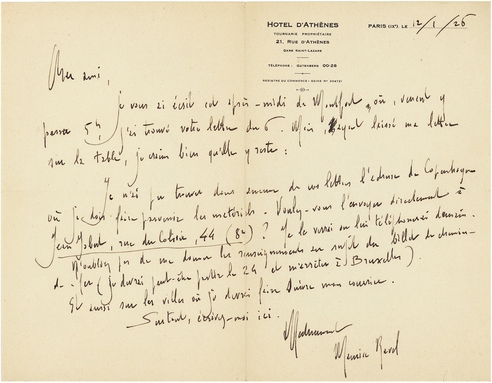 HOTEL D'ATHÈNES
TOURNARIE PROPRIÉTAIRE
21, RUE D'ATHÈNES
GARE SAINT-LAZARE
TÉLÉPHONE : GUTENBERG 00-25
REGISTRE DU COMMERCE : SEINE
PARIS (IXe), LE 12/1/26
Cher ami,
Je vous ai écrit cet après-midi de Montfort, où, venant y
passer 5h, j'ai trouvé votre lettre du 6. Mais, ayant laissé ma lettre
sur la table, je crains bien qu'elle y reste :
Je n'ai pu trouver dans aucune de vos lettres l'adresse de Copenhague
où je dois faire parvenir les matériels. Voulez-vous l'envoyer directement à
Jean Jobert, rue du Colisée, 44 (8e) ? Je le verrai ou lui téléphonerai demain.
N'oubliez pas de me donner les renseignements au sujet du billet de chemin-
de-fer (je devrai peut-être partir le 24 et m'arrêter à Bruxelles).
Et aussi sur les villes où je devrai faire suivre mon courrier.
Surtout, écrivez-moi ici.
Maurice Ravel